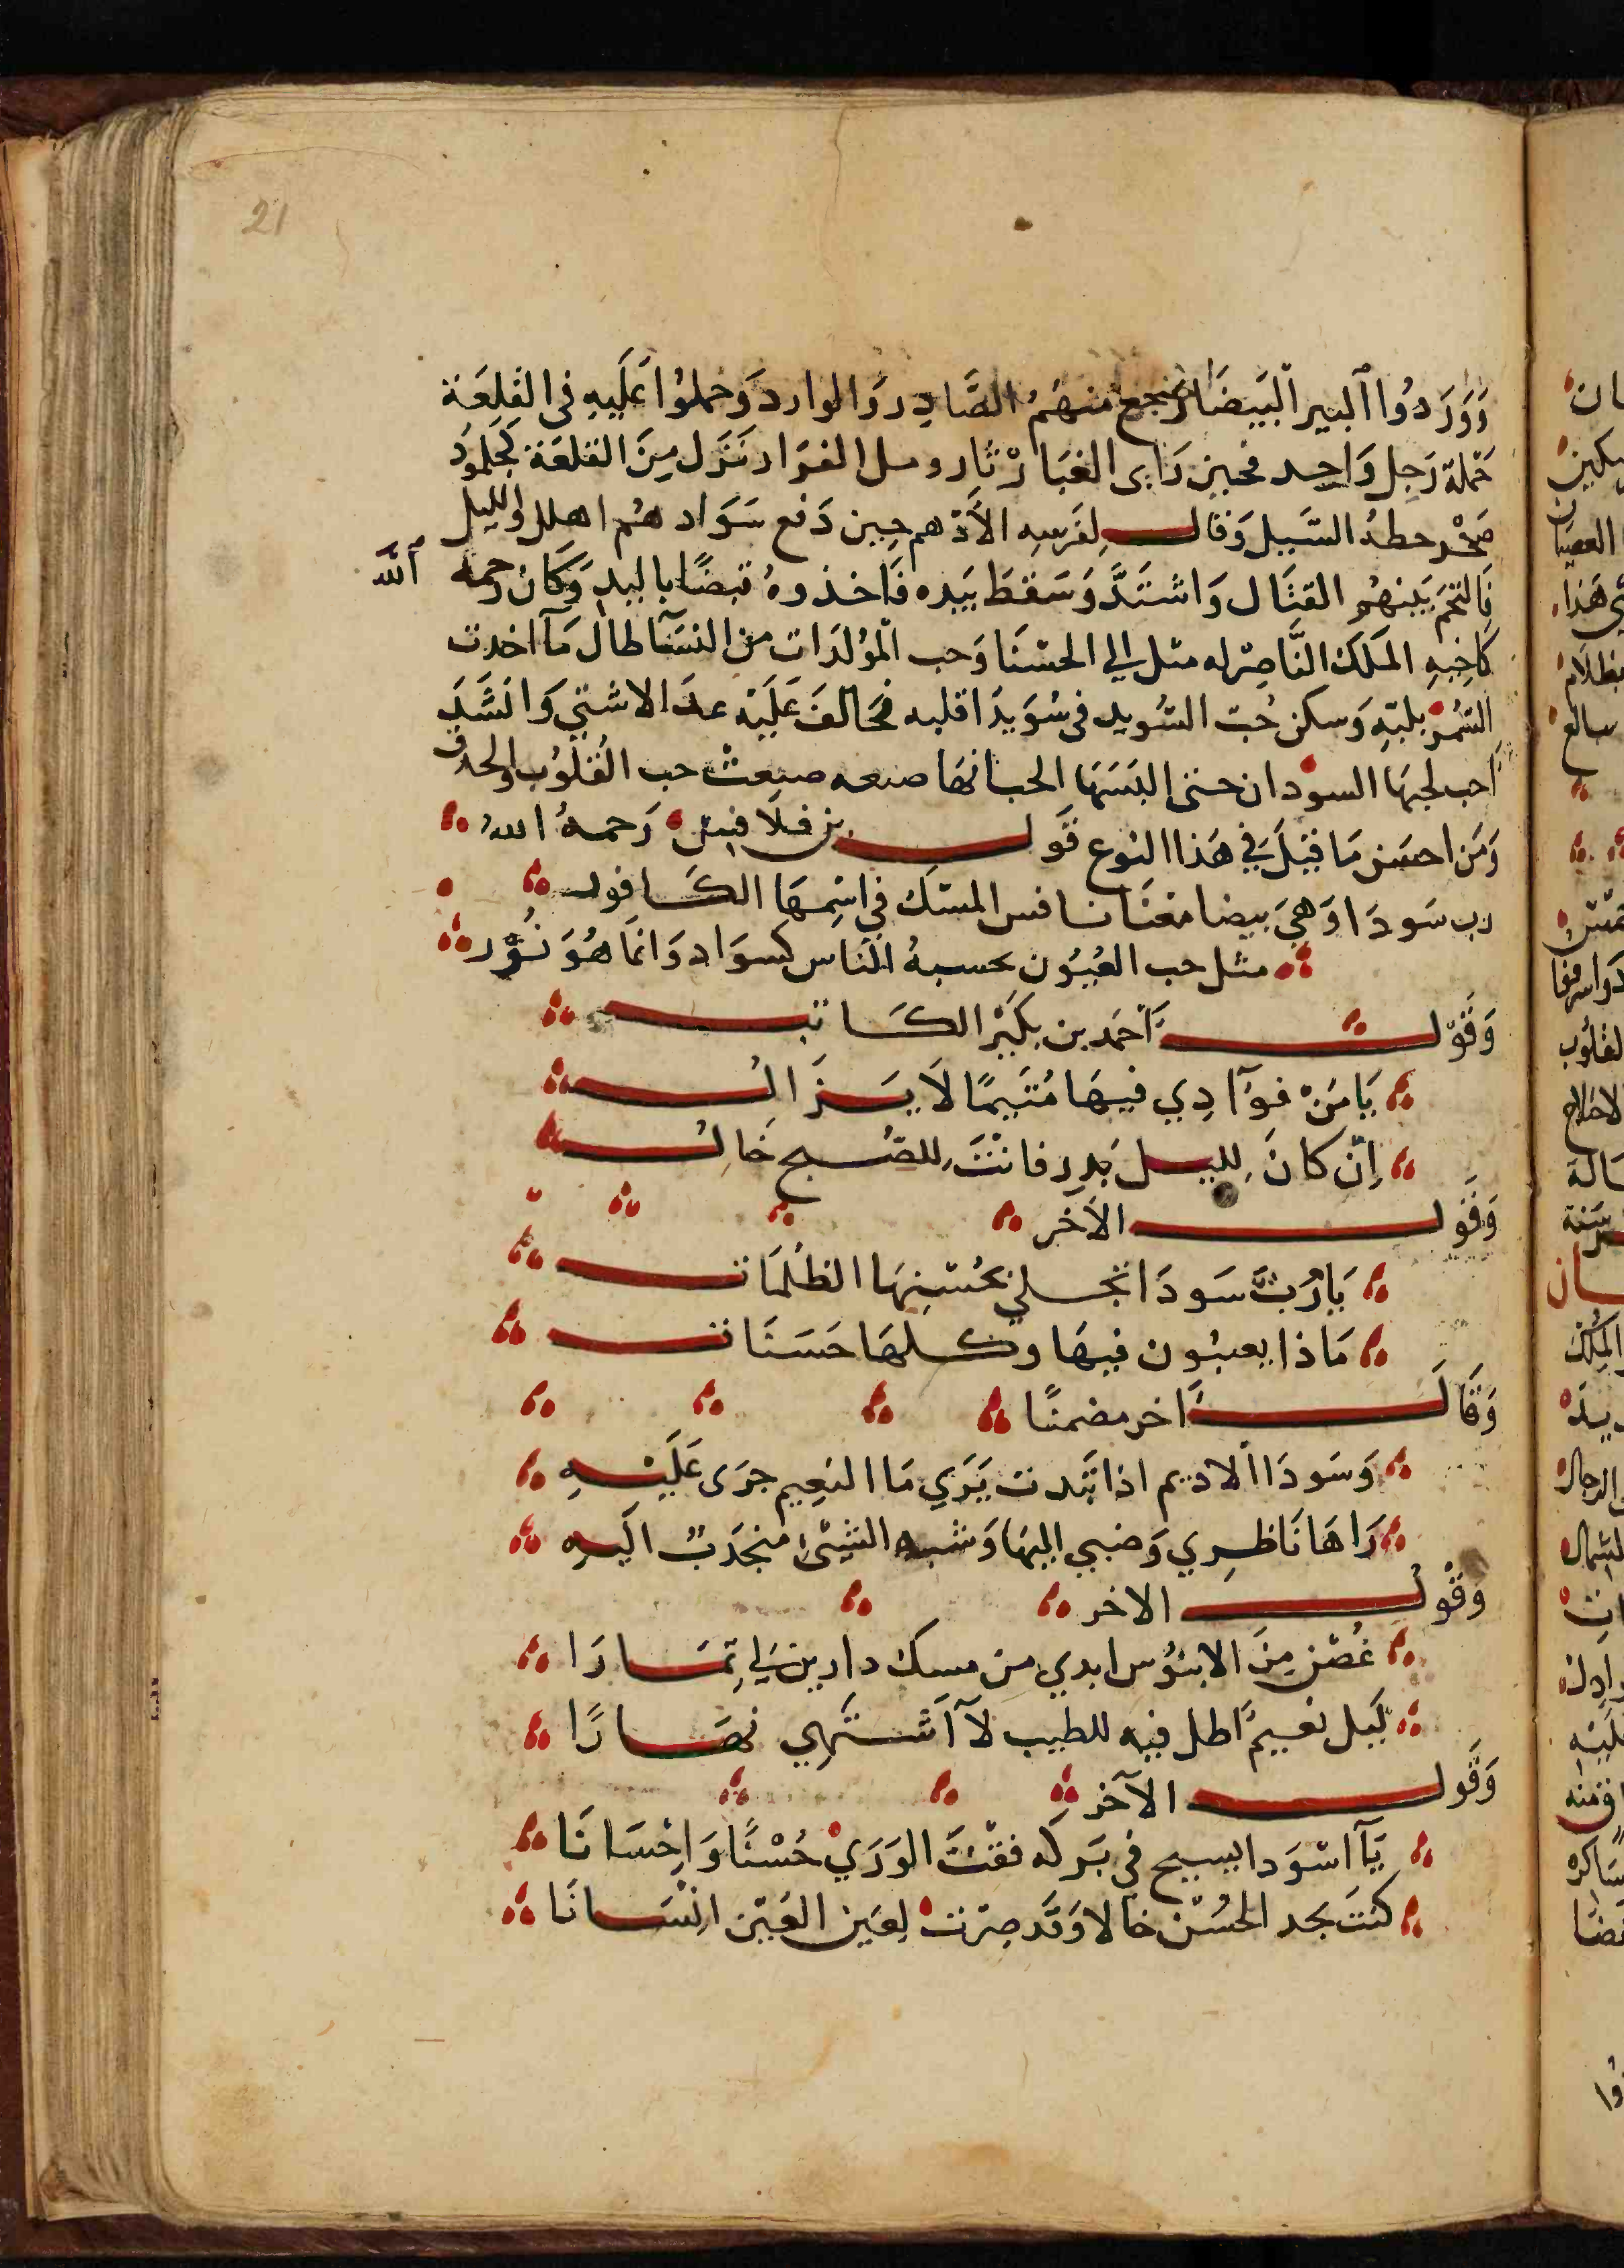 21
وَوَرَدُوا البير البَيضَا فرجع مِنهُم الصَّادِر وَالوارد وَحملوُا عَلَيهِ فى القلعَة
حَملة رَجل وَاحِد فحين رَاى الغبَار ثار وسل الغرار نَزَل مِنَ القلعَة كجلموُد
صَخْر حطهُ السَّيل وَقال لِفَرسِه الأَدهم حِين دَفع سَوَادهُم اهلل والليل
فَالتحَم بَينهُم القتَال وَاشتَدَّ وَسَقطَ بيَده فَاَخذوهُ قبضًا باليد وَكَان رحمهُ الله
كَاخِيهِ المَلَك النَّاصِر له ميل الي الحسْنَا وَحب المُولدَات من النسَآ طال مَآ اخدت
السُّمرُ بلبّهِ وَسكن حُبّ السُّويد فى سُوَيدَا قلبه فحَالفَ عَلَيْه عدَ الاشتي وَانشَدَ
اَحب لحبهَا السودان حتى البَسَهَا الحب انهَا صنعه صبِغتْ حب القُلوُب والحدق
وَمَن احسَن مَا قيلَ في هَذا النوع قَول بن قلاقِس رَحمهُ الله
رب سَودَا وَهيَ بيضا مَعْنَا نافس المسْك في اسْمهَا الكَافور
مثل حب العُيُون يحسبهُ النَاس كسوَاد وَانمَا هُوَ نُوُر
وَقَوْل اَحمَد بن بكيْر الكَاتب
يَا مَنْ فوآدِي فيهَا مُتَيمًا لاَ يَزَالُ
اِنّ كانَ لِليل بَدر فانتَ لِلصُّبح خَالُ
وَقَول الآخر
يَا رُبَّ سَودَا تجلي بحُسْنِهَا الظلمَات
مَاذا يعيبُون فيهَا وكلهَا حَسَنَات
وَقَالَ اَخر مضمنًا
وَسَودَا الاديم اذا تبَدت يَرَي مَا النعِيم جرَى عَلَيْهِ
رَاهَا نَاظِري وَصَبي اليهَا وَشبه الشيْئ منجَدبٌ اليهِ
وَقَوْلُ الاخر
غُصْن مِنَ الابنوُس ابدي من مسك دارين لي ثِمَارَا
لَيل نعيم اَطل فيه للطيب لآ اَشْتَهِي نهَارًا
وَقَول الآخر
يَآ اسْوَدا يسبح في بَركَه فقْتَ الوَرَي حُسْنًا وَاِحْسَانَا
كنتَ بخد الحُسْن خالا وَقَد صِرْت لِعَين العَيْن انْسَانَا